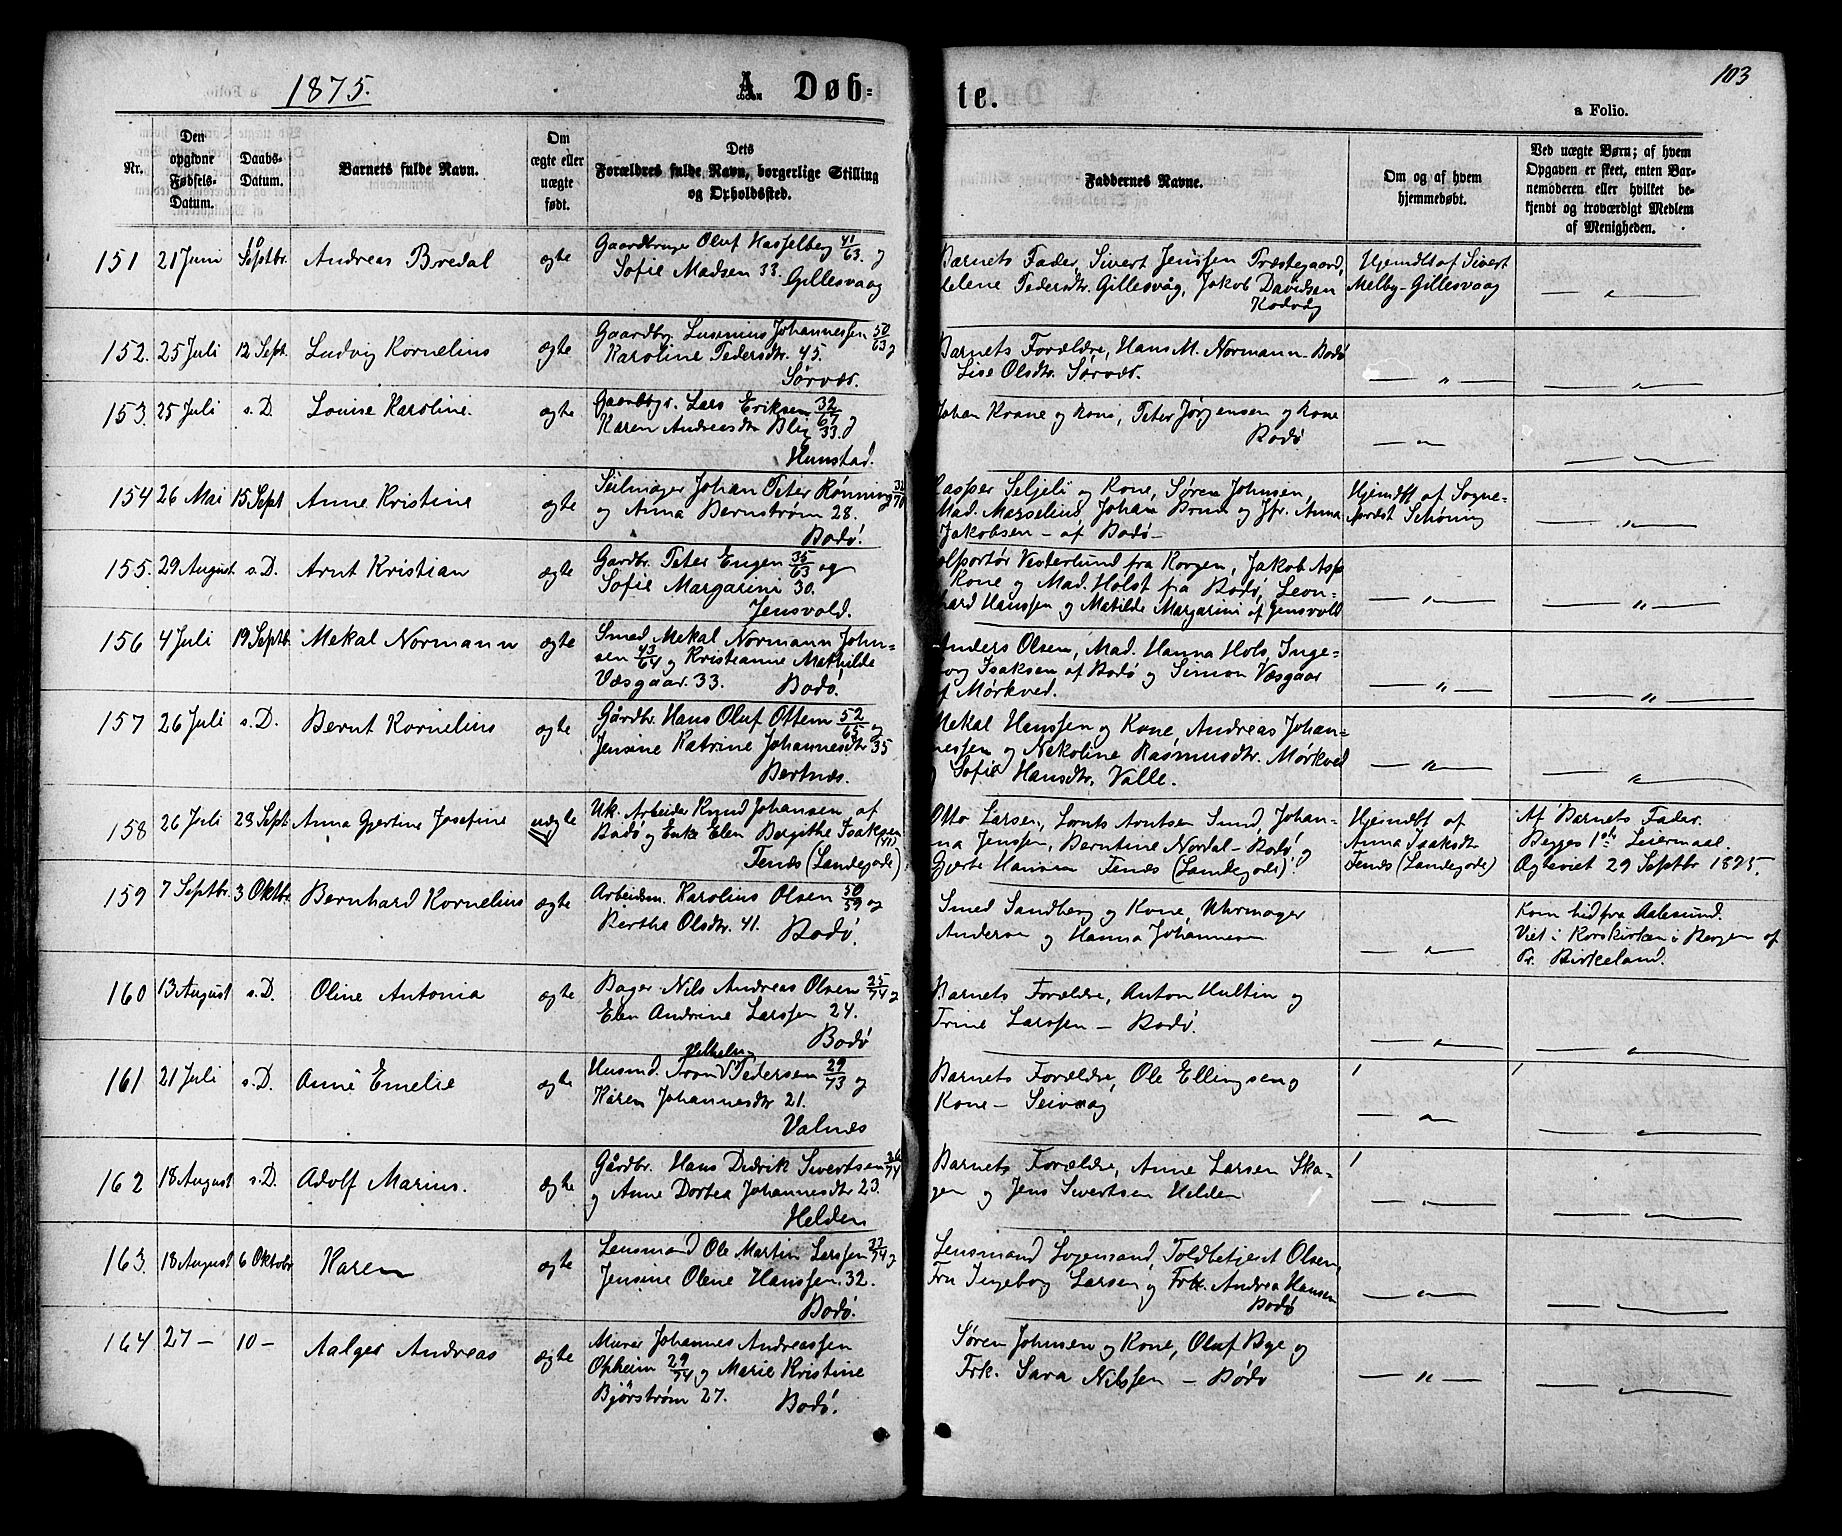 1875.
A. Døb-
te.
103
a Folio.
Nr.
Den opgivne Fødsels-Datum.
Daabs-Datum.
Barnets fulde Navn.
Om ægte eller uægte født.
Dets Forældres fulde Navn, borgerlige Stilling og Opholdssted.
Faddernes Navne.
Om og af hvem hjemmedøbt.
Ved uægte Børn; af hvem Opgaven er skeet, enten Barnemoderen eller hvilket bekjendt og troværdigt Medlem af Menigheden.
151 21 Juni Septbr. Andreas Bredal ægte
Gaardbruger Oluf Hasselberg 41/63 og
Sofie Madsen 33. Gillesvaag
Barnets Fader, Sivert Jenssen Præstegaard,
Pedersdtr. Gillesvåg, Jakob Davidsen
Hjemdbt af Sivert
Melby - Gillesvaag
152. 25 Juli 12 Sept. Ludvig Kornelius ægte
Gaardbr. Johannessen 50/63 og
Karoline Pedersdtr. 45.
Sørvær.
Barnets Forældre, Hans M. Normann - Bodø
Lise Olsdtr. Sørvær.
153. 25 Juli s.D. Louise Karoline. ægte
Gaardbgr. Lars Eriksen 32/67 og
Karen Andreasdtr Blix 33.
Hunstad.
Johan Krane og Kone, Peter Jørgensen og Kone
Bodø
154 26 Mai 15 Sept Anne Kristine ægte
Seilmager Johan Peter Rønning
og Anna Bernstrøm 28.
Bodø.
Kasper Seljeli og Kone, Søren Johnsen,
Mad. Marselius, Johan Bruun og Jfr. Anna
Jakobsen - af Bodø -
Hjemdbt af Sogne-
præst Schøning
155. 29 August s.D. Arnt Kristian ægte
Gardbr. Peter Engen 35/63 og
Sofie Margarini 30.
Jensvold.
Kolportør Vesterlund fra Korgen, Jakob Asp
Kone og Mad. Holst fra Bodø, Leon-
hard Hanssen og Matilde Margarini af Jensvoll
156 4 Juli 19 Septbr. Mekal Normann ægte
Smed Mekal Normann John-
sen 43/64 og Kristianne Mathilde
Væsgaar. 33. Bodø.
Anders Olsen, Mad. Hanna Hols, Inge-
borg Isaksen af Bodø og Simon Væsgaar
af Mørkved.
157 26 Juli s.D. Bernt Kornelius ægte
Gårdbr. Hans Oluf Ottem 52/65 og
Jensine Katrine Johannesdtr 35
Bertnæs.
Mekal Hanssen og Kone, Andreas Johan-
nessen og Nekoline Rasmusdtr. Mørkved
Sofie Hansdtr. Valle.
158 26 Juli 29 Sept Anna Gjertine Josefine uægte
Uk. Arbeider Knud Johansen af
Bodø og Enke Elen Bergithe Isaksen (41)
Fenæs (Landegode)
Otto Larsen, Lorents Arntsen Smed, Johan-
na Jenssen, Berntine Nordal - Bodø og
Gjerte Hansen Fenæs (Landegode).
Hjemdbt af
Anna Isaksdtr
Fenæs (Landegode)
Af Barnets Fader.
Begges 1ste Leiermaal.
Ægteviet 29 Septbr 1875.
159 7 Septbr. 3 Oktbr. Bernhard Kornelius ægte
Arbeidsm. Karolius Olsen 50/59 og
Bertha Olsdtr. 41. Bodø.
Smed Sandberg og Kone, Uhrmager
Andersen og Hanna Johannesen
Kom hid fra Aalesund.
Viet i Korskirken i Bergen af
Pr. Birkeland.
160 13 August s.D. Oline Antonia ægte
Bager Nils Andreas Olsen 25/74 og
Elen Andrine Larssen 24.
Bodø
Barnets Forældre, Anton Hultin og
Trine Larssen - Bodø.
161 21 Juli s.D. Anne Emelie ægte
Husmd. Vilhelm Pedersen 29/73 og
Karen Johannesdtr 21.
Valnes
Barnets Forældre, Ole Ellingsen og
Kone - Seivaag
162 18 August s.D. Adolf Marius. ægte
Gårdbr. Hans Didrik Sivertsen 26/74
og Anne Dortea Johannesdtr 23.
Helden
Barnets Forældre, Anne Larsen Ska-
gen og Jens Sivertsen Helden
163. 18 August 6 Oktobr Karen ægte
Lensmand Ole Martin Larssen 33/74 og
Jensine Olene Hanssen. 32.
Bodø.
Lensmand Logensand, Toldbetjent Olsen,
Fru Ingeborg Larsen og Frk. Andrea Hansen
Bodø
164 27 - 10 - Aalger Andreas ægte
Murer Johannes Andreassen
Opheim 29/74 og Marie Kristine
Bjørstrøm 27. Bodø.
Søren Johnsen og Kone, Oluf Bye og
Frk. Sara Nilssen - Bodø